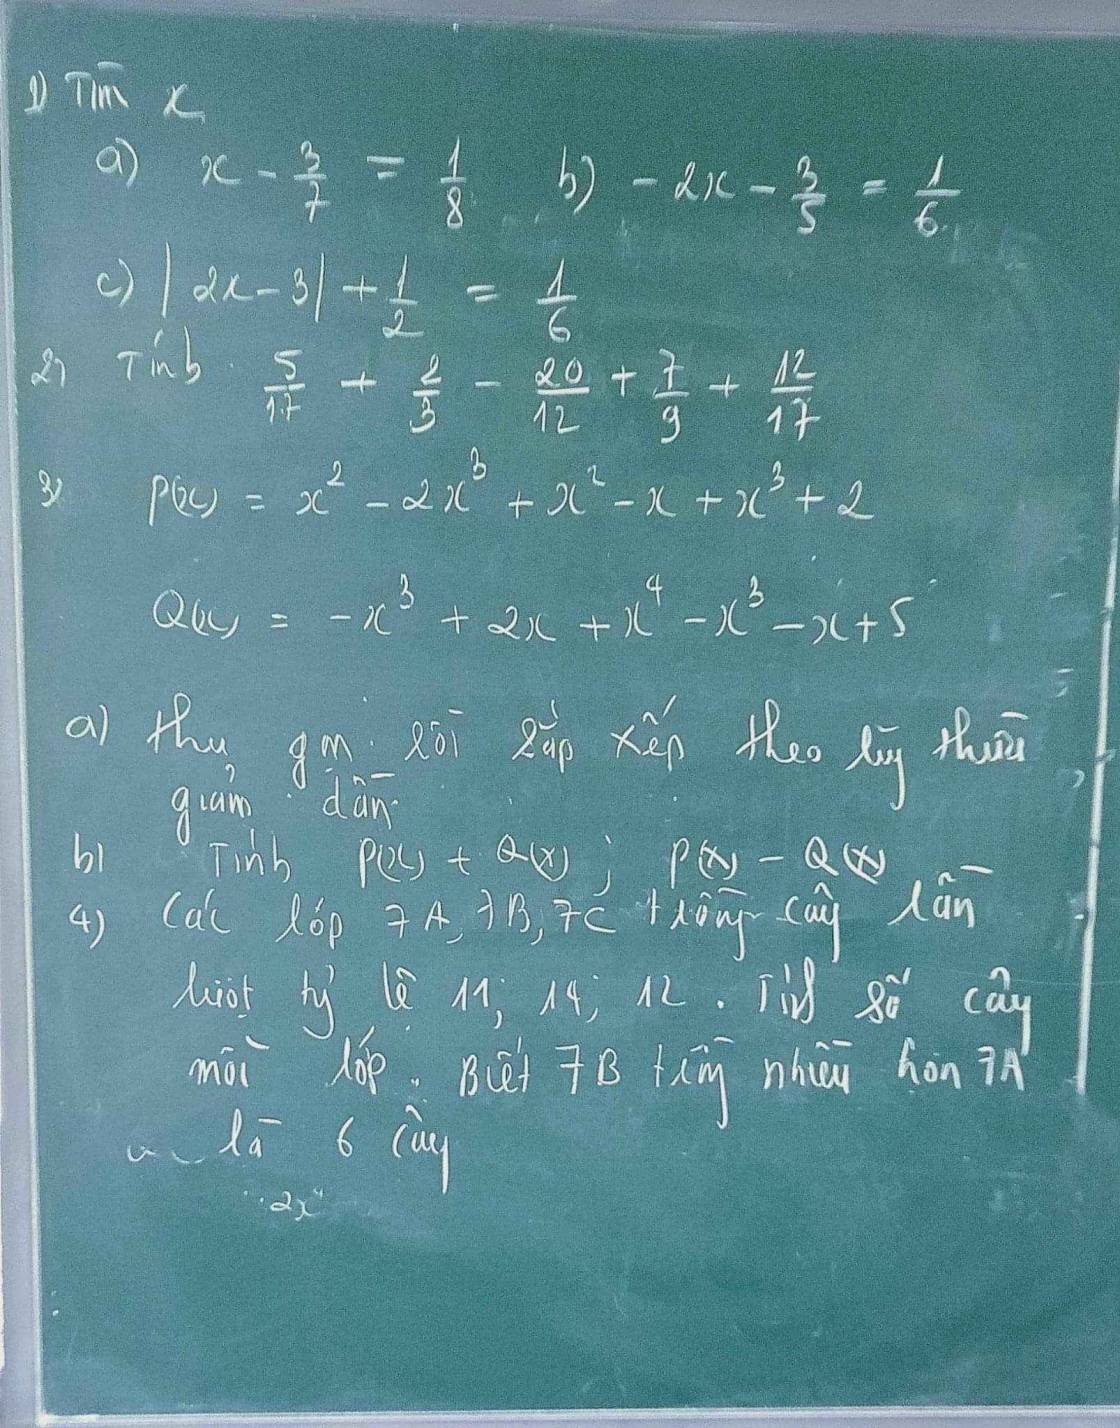 1) Tìm x
a) x - 3/7 = 1/8 b) - 2x - 3/5 = 1/6
c) |2x - 3| + 1/2 = 1/6
2) Tính 5/17 + 2/3 - 20/12 + 7/9 + 12/17
3) P(x) = x² - 2x³ + x² - x + x³ + 2
Q(x) = -x³ + 2x + x⁴ - x³ - x + 5
a) thu gọn rồi sắp xếp theo lũy thừa
giảm dần
b) Tính P(x) + Q(x) ; P(x) - Q(x)
4) Các lớp 7A, 7B, 7C trồng cây lần
lượt tỷ lệ 11; 14; 12. Tính số cây
mỗi lớp. Biết 7B trồng nhiều hơn 7A
là 6 cây
2x